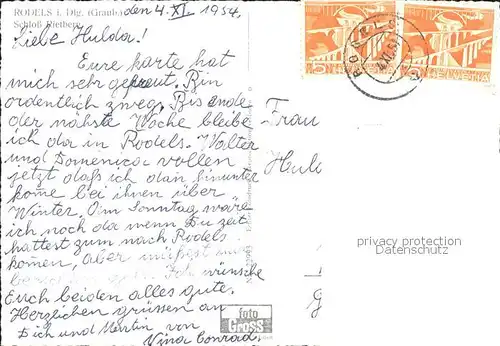 RODELS i. Dlg. (Graub.)
Schloß Rietberg
den 4. XI. 1954
Liebe Hulda!
Eure karte hat
mich sehr gefreut. Bin
ordentlich zweg. Bis ende
der nächste Woche bleibe
ich da in Rodels. Walter
und Domenica vollen
jetzt daß ich dan hinunter
kome bei ihnen über
Winter. Am Sonntag wäre
ich noch da wenn Du zeit
hattest zum nach Rodels
komen, aber müsstest mir
Ich wünsche
Euch beiden alles gute.
Herzlichen grüssen an
Dich und Martin von
Nina Conrad.
Frau
Huld
HELVETIA
5
privacy protection
VARIOUS
foto
GROSS